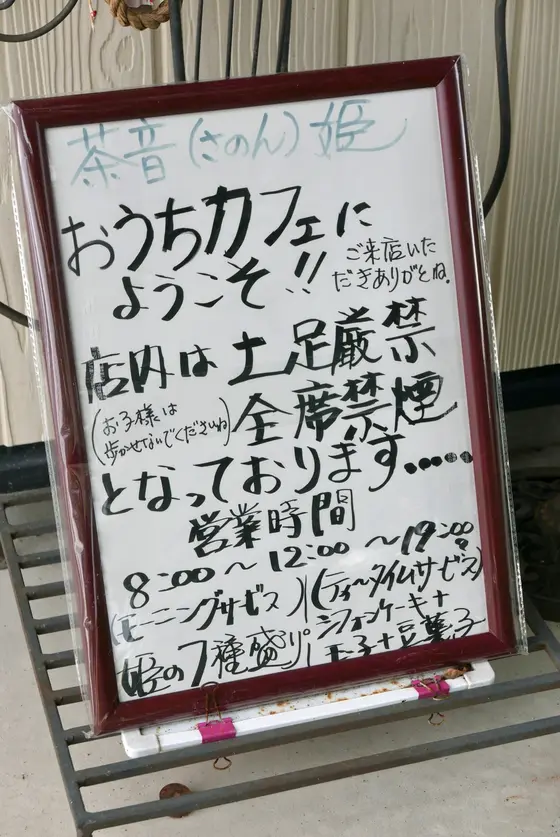 茶音(さのん)姫
おうちカフェに
ようこそ!!
ご来店いた
だきありがとね。
店内は土足厳禁
(お子様は
歩かせないでくださいね)
全席禁煙
となっております.....
営業時間
8:00〜12:00〜19:00
(モーニングサービス)
(ティータイムサービス)
姫の7種盛り
シフォンケーキ+
玉子+豆菓子